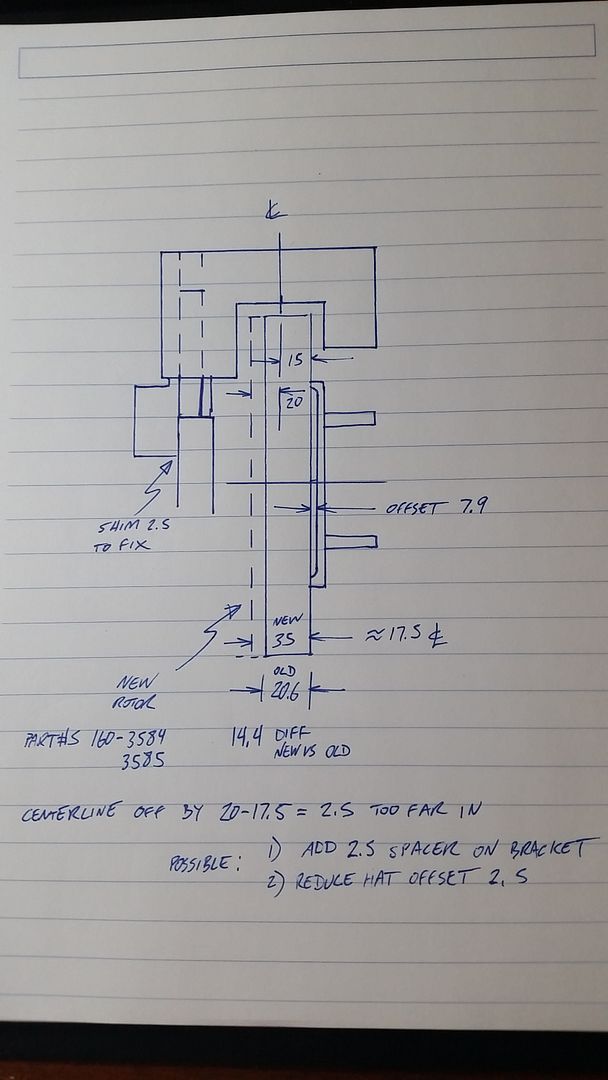 ℄
15
20
OFFSET 7.9
SHIM 2.5
TO FIX
NEW
35
≈17.5 ℄
OLD
20.6
NEW
ROTOR
PART#S 160-3584
3585
14.4 DIFF
NEW VS OLD
CENTERLINE OFF BY 20-17.5 = 2.5 TOO FAR IN
POSSIBLE: 1) ADD 2.5 SPACER ON BRACKET
2) REDUCE HAT OFFSET 2.5